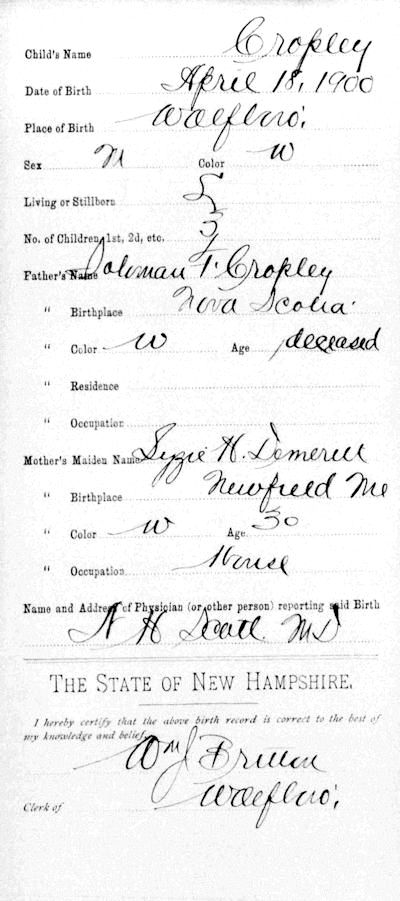 Child's Name Cropley
Date of Birth April 18, 1900
Place of Birth Wolfboro.
Sex M Color W
Living or Stillborn L
No. of Children, 1st, 2d, etc. 3
Father's Name Soloman T. Cropley
" Birthplace Nova Scotia
" Color W Age deceased
" Residence
" Occupation
Mother's Maiden Name Lizzie H. Demeritt
" Birthplace Newfield Me
" Color W Age 30
" Occupation House
Name and Address of Physician (or other person) reporting said Birth
N H Scott MD
THE STATE OF NEW HAMPSHIRE.
I hereby certify that the above birth record is correct to the best of
my knowledge and belief.
Wm J Britton
Clerk of Wolfboro.